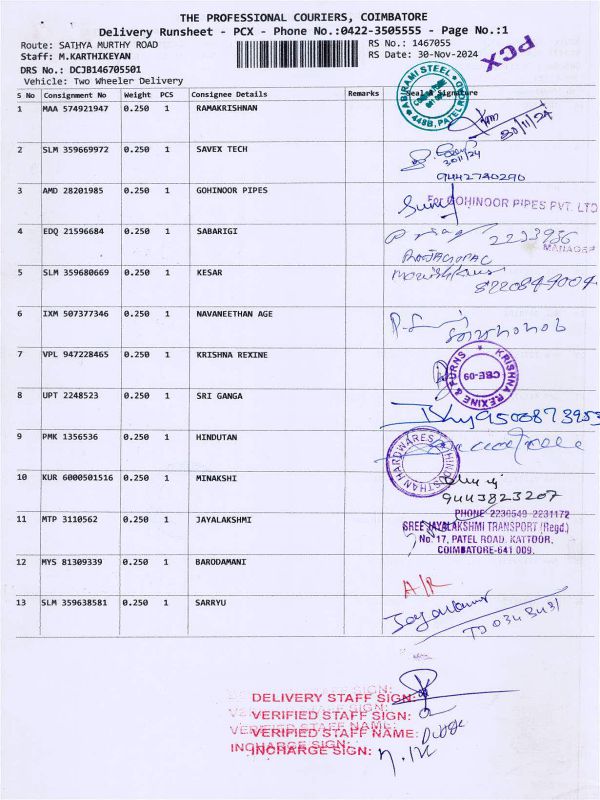 THE PROFESSIONAL COURIERS, COIMBATORE
Delivery Runsheet - PCX - Phone No.:0422-3505555 - Page No.:1
Route: SATHYA MURTHY ROAD RS No.: 1467055
Staff: M.KARTHIKEYAN RS Date: 30-Nov-2024
PCX
DRS No.: DCJB146705501
Vehicle: Two Wheeler Delivery
S No Consignment No Weight PCS Consignee Details Remarks Seal & Signature
1 MAA 574921947 0.250 1 RAMAKRISHNAN
ABIRAMI STEEL
448B, PATEL
30/11/24
2 SLM 359669972 0.250 1 SAVEX TECH
30/11/24
9442740290
3 AMD 28201985 0.250 1 GOHINOOR PIPES
For GOHINOOR PIPES PVT. LTD
4 EDQ 21596684 0.250 1 SABARIGI
2233986
MANAGER
5 SLM 359680669 0.250 1 KESAR
6 IXM 507377346 0.250 1 NAVANEETHAN AGE
7 VPL 947228465 0.250 1 KRISHNA REXINE
KRISHNA REXINE & FURNS
CBE-09
8 UPT 2248523 0.250 1 SRI GANGA
9 PMK 1356536 0.250 1 HINDUTAN
HINDUSTHAN HARDWARES
10 KUR 6000501516 0.250 1 MINAKSHI
9443823207
11 MTP 3110562 0.250 1 JAYALAKSHMI
PHONE 2230549 2231172
SREE JAYALAKSHMI TRANSPORT (Regd.)
No. 17, PATEL ROAD, KATTOOR,
COIMBATORE-641 009.
12 MYS 81309339 0.250 1 BARODAMANI
A/R
13 SLM 359638581 0.250 1 SARRYU
DELIVERY STAFF SIGN:
VERIFIED STAFF SIGN:
VERIFIED STAFF NAME:
INCHARGE SIGN: